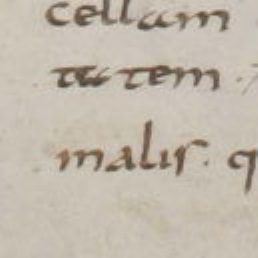 cellam
tatem
malis. q